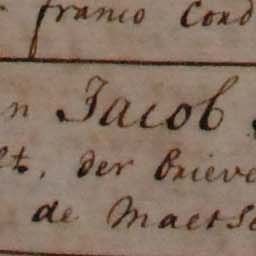 franco Cond
n Jacob
lt, der brieve
de Maetsc